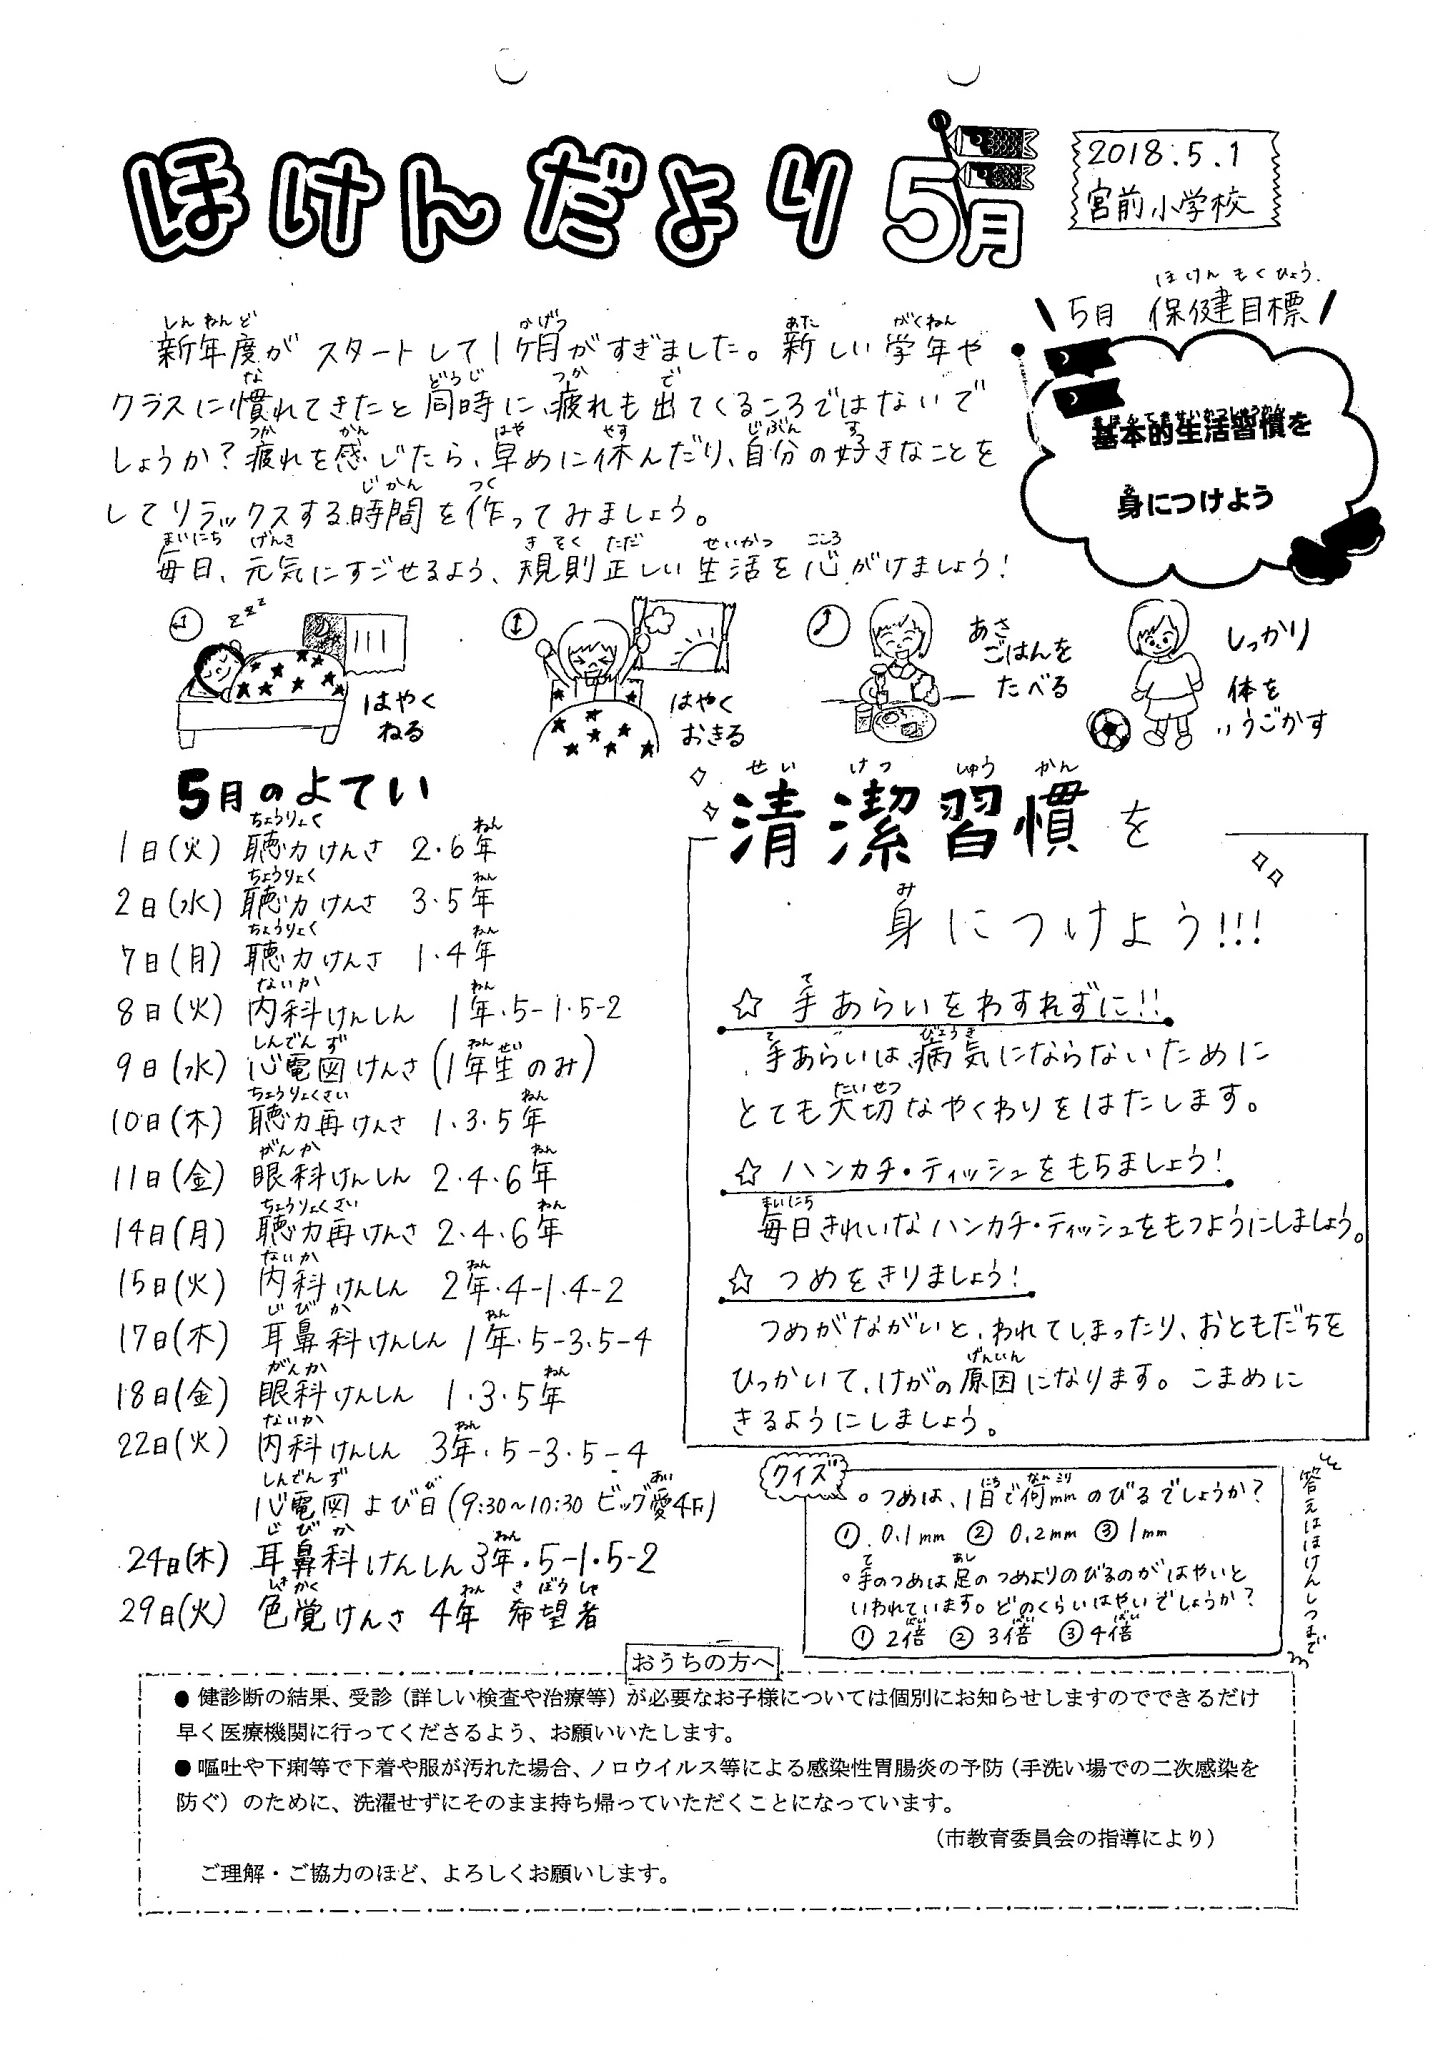 ほけんだより 5月
2018.5.1
宮前小学校
新年度がスタートして1ヶ月がすぎました。新しい学年や
クラスに慣れてきたと同時に、疲れも出てくるころではないで
しょうか？疲れを感じたら、早めに休んだり、自分の好きなことを
してリラックスする時間を作ってみましょう。
毎日、元気にすごせるよう、規則正しい生活を心がけましょう！
5月 保健目標
基本的生活習慣を
身につけよう
zzz
はやく
ねる
はやく
おきる
あさ
ごはんを
たべる
しっかり
体を
うごかす
5月のよてい
1日(火) 聴力けんさ 2・6年
2日(水) 聴力けんさ 3・5年
7日(月) 聴力けんさ 1・4年
8日(火) 内科けんしん 1年・5-1・5-2
9日(水) 心電図けんさ(1年生のみ)
10日(木) 聴力再けんさ 1・3・5年
11日(金) 眼科けんしん 2・4・6年
14日(月) 聴力再けんさ 2・4・6年
15日(火) 内科けんしん 2年・4-1・4-2
17日(木) 耳鼻科けんしん 1年・5-3・5-4
18日(金) 眼科けんしん 1・3・5年
22日(火) 内科けんしん 3年・5-3・5-4
心電図よび日(9:30〜10:30 ビッグ愛4F)
24日(木) 耳鼻科けんしん 3年・5-1・5-2
29日(火) 色覚けんさ 4年 希望者
清潔習慣を
身につけよう!!!
☆ 手あらいをわすれずに!!
手あらいは、病気にならないために
とても大切なやくわりをはたします。
☆ ハンカチ・ティッシュをもちましょう!
毎日きれいなハンカチ・ティッシュをもつようにしましょう。
☆ つめをきりましょう!
つめがながいと、われてしまったり、おともだちを
ひっかいて、けがの原因になります。こまめに
きるようにしましょう。
クイズ
○つめは、1日で何mmのびるでしょうか？
① 0.1mm ② 0.2mm ③ 1mm
○手のつめは足のつめよりのびるのがはやいと
いわれています。どのくらいはやいでしょうか？
① 2倍 ② 3倍 ③ 4倍
答えはほけんしつまで
おうちの方へ
●健診断の結果、受診（詳しい検査や治療等）が必要なお子様については個別にお知らせしますのでできるだけ
早く医療機関に行ってくださるよう、お願いいたします。
●嘔吐や下痢等で下着や服が汚れた場合、ノロウイルス等による感染性胃腸炎の予防（手洗い場での二次感染を
防ぐ）のために、洗濯せずにそのまま持ち帰っていただくことになっています。
（市教育委員会の指導により）
ご理解・ご協力のほど、よろしくお願いします。